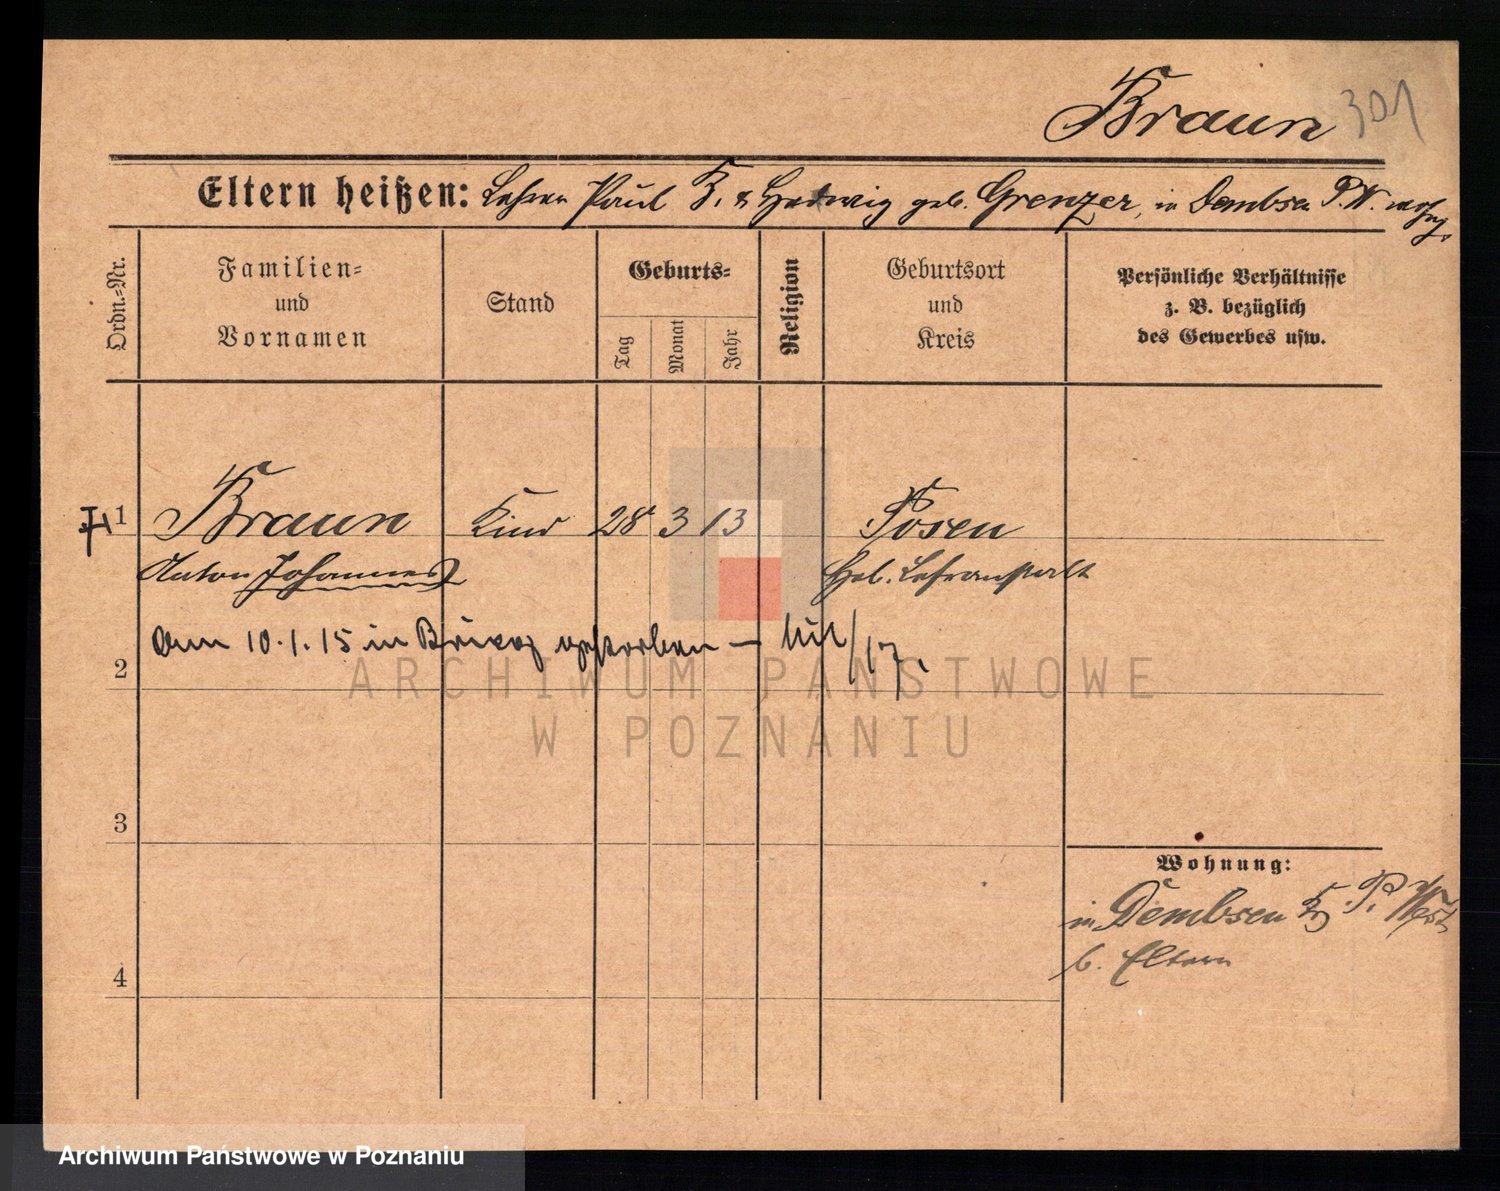 Braun 301
Eltern heißen: Lehrer Paul B. u Hedwig geb. Grenzer, in Dembsen P. W. wohng.
Ordn.-Nr.
Familien-
und
Vornamen
Stand
Geburts-
Tag
Monat
Jahr
Religion
Geburtsort
und
Kreis
Persönliche Verhältnisse
z. B. bezüglich
des Gewerbes usw.
1 Braun Kind 28 3 13 Posen
Anton Johannes Heb. Lehranstalt
am 10.1.15 in gestorben —
2
3
Wohnung:
in Dembsen Kr P. West
b. Eltern
4
ARCHIWUM PAŃSTWOWE
W POZNANIU
Archiwum Państwowe w Poznaniu